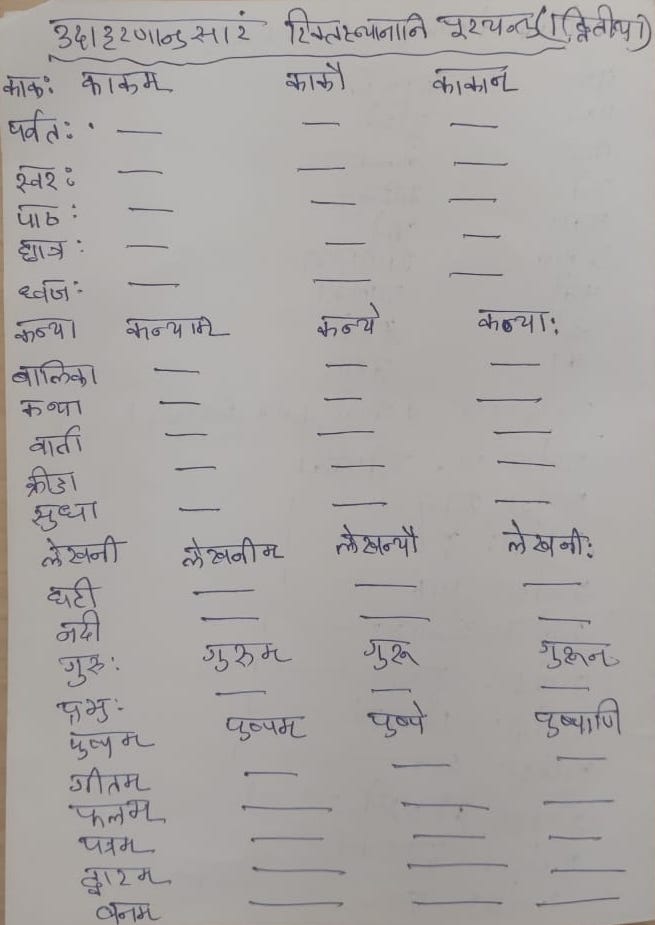 उदाहरणानुसारं रिक्तस्थानानि पूरयन्तु (द्वितीया)
काकः काकम् काकौ काकान्
पर्वतः — — —
स्वरः — — —
पाठः — — —
छात्रः — — —
ध्वजः — — —
कन्या कन्याम् कन्ये कन्याः
बालिका — — —
कथा — — —
वार्ता — — —
क्रीडा — — —
सुधा — — —
लेखनी लेखनीम् लेखन्यौ लेखनीः
घटी — — —
नदी — — —
गुरुः गुरुम् गुरू गुरून्
प्रभुः — — —
पुष्पम् पुष्पम् पुष्पे पुष्पाणि
गीतम् — — —
फलम् — — —
पत्रम् — — —
द्वारम् — — —
वनम् — — —